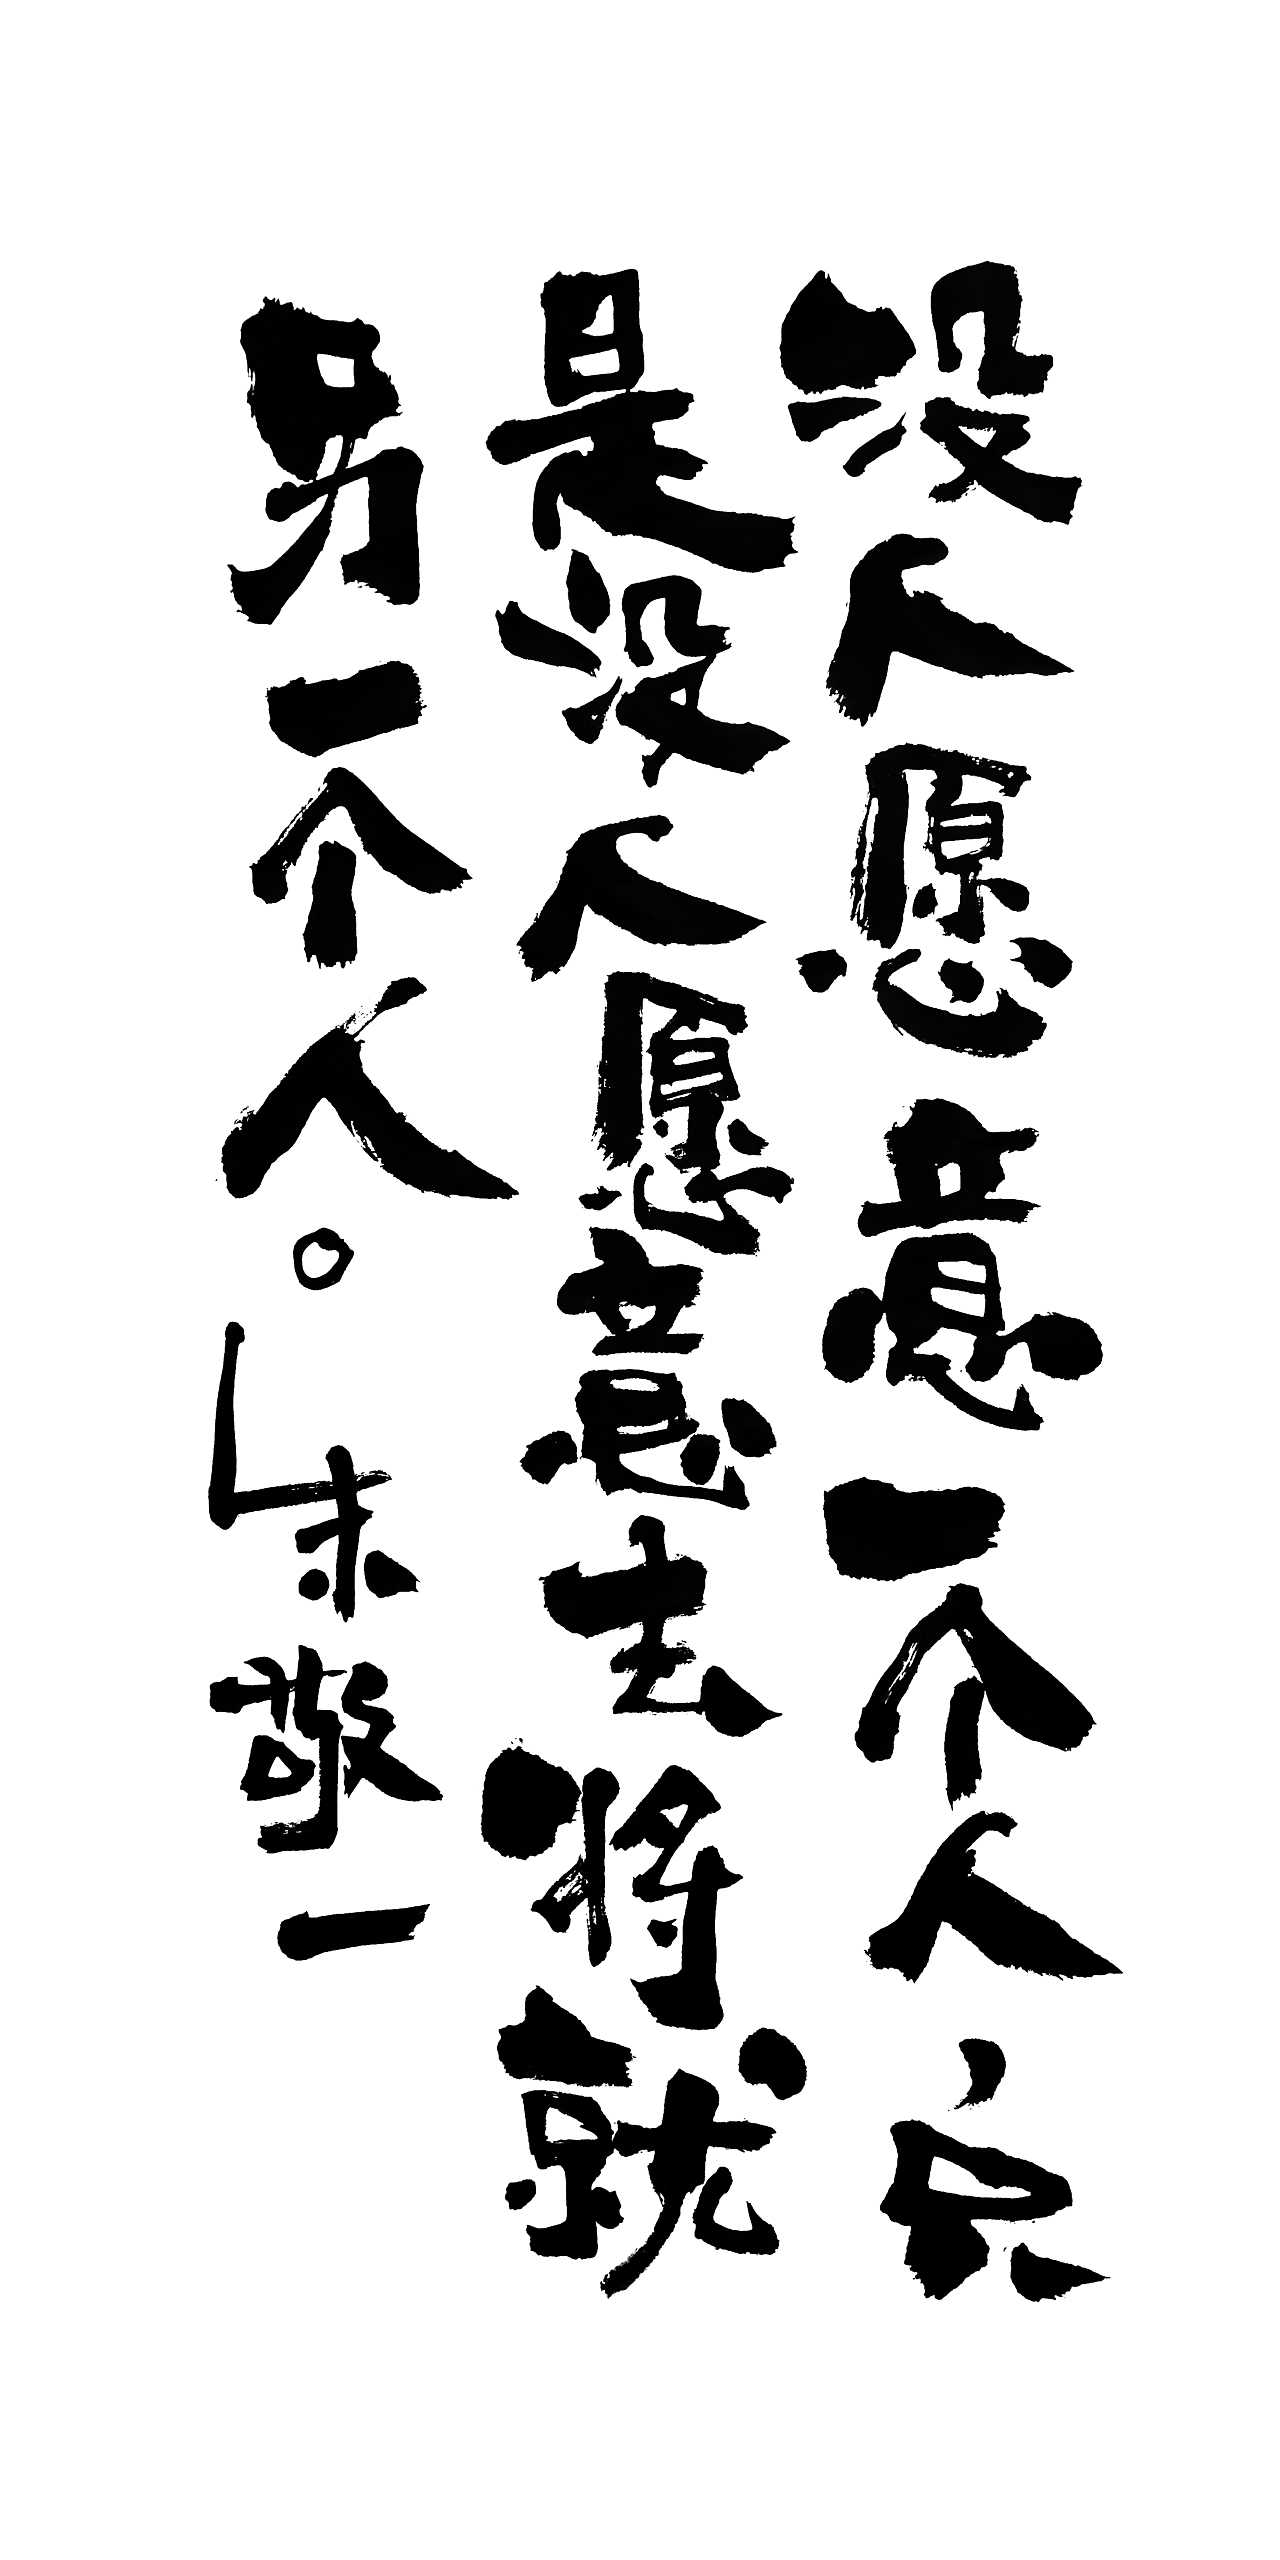 没人愿意一个人只
是没人愿意去将就
另一个人。
朱敬一